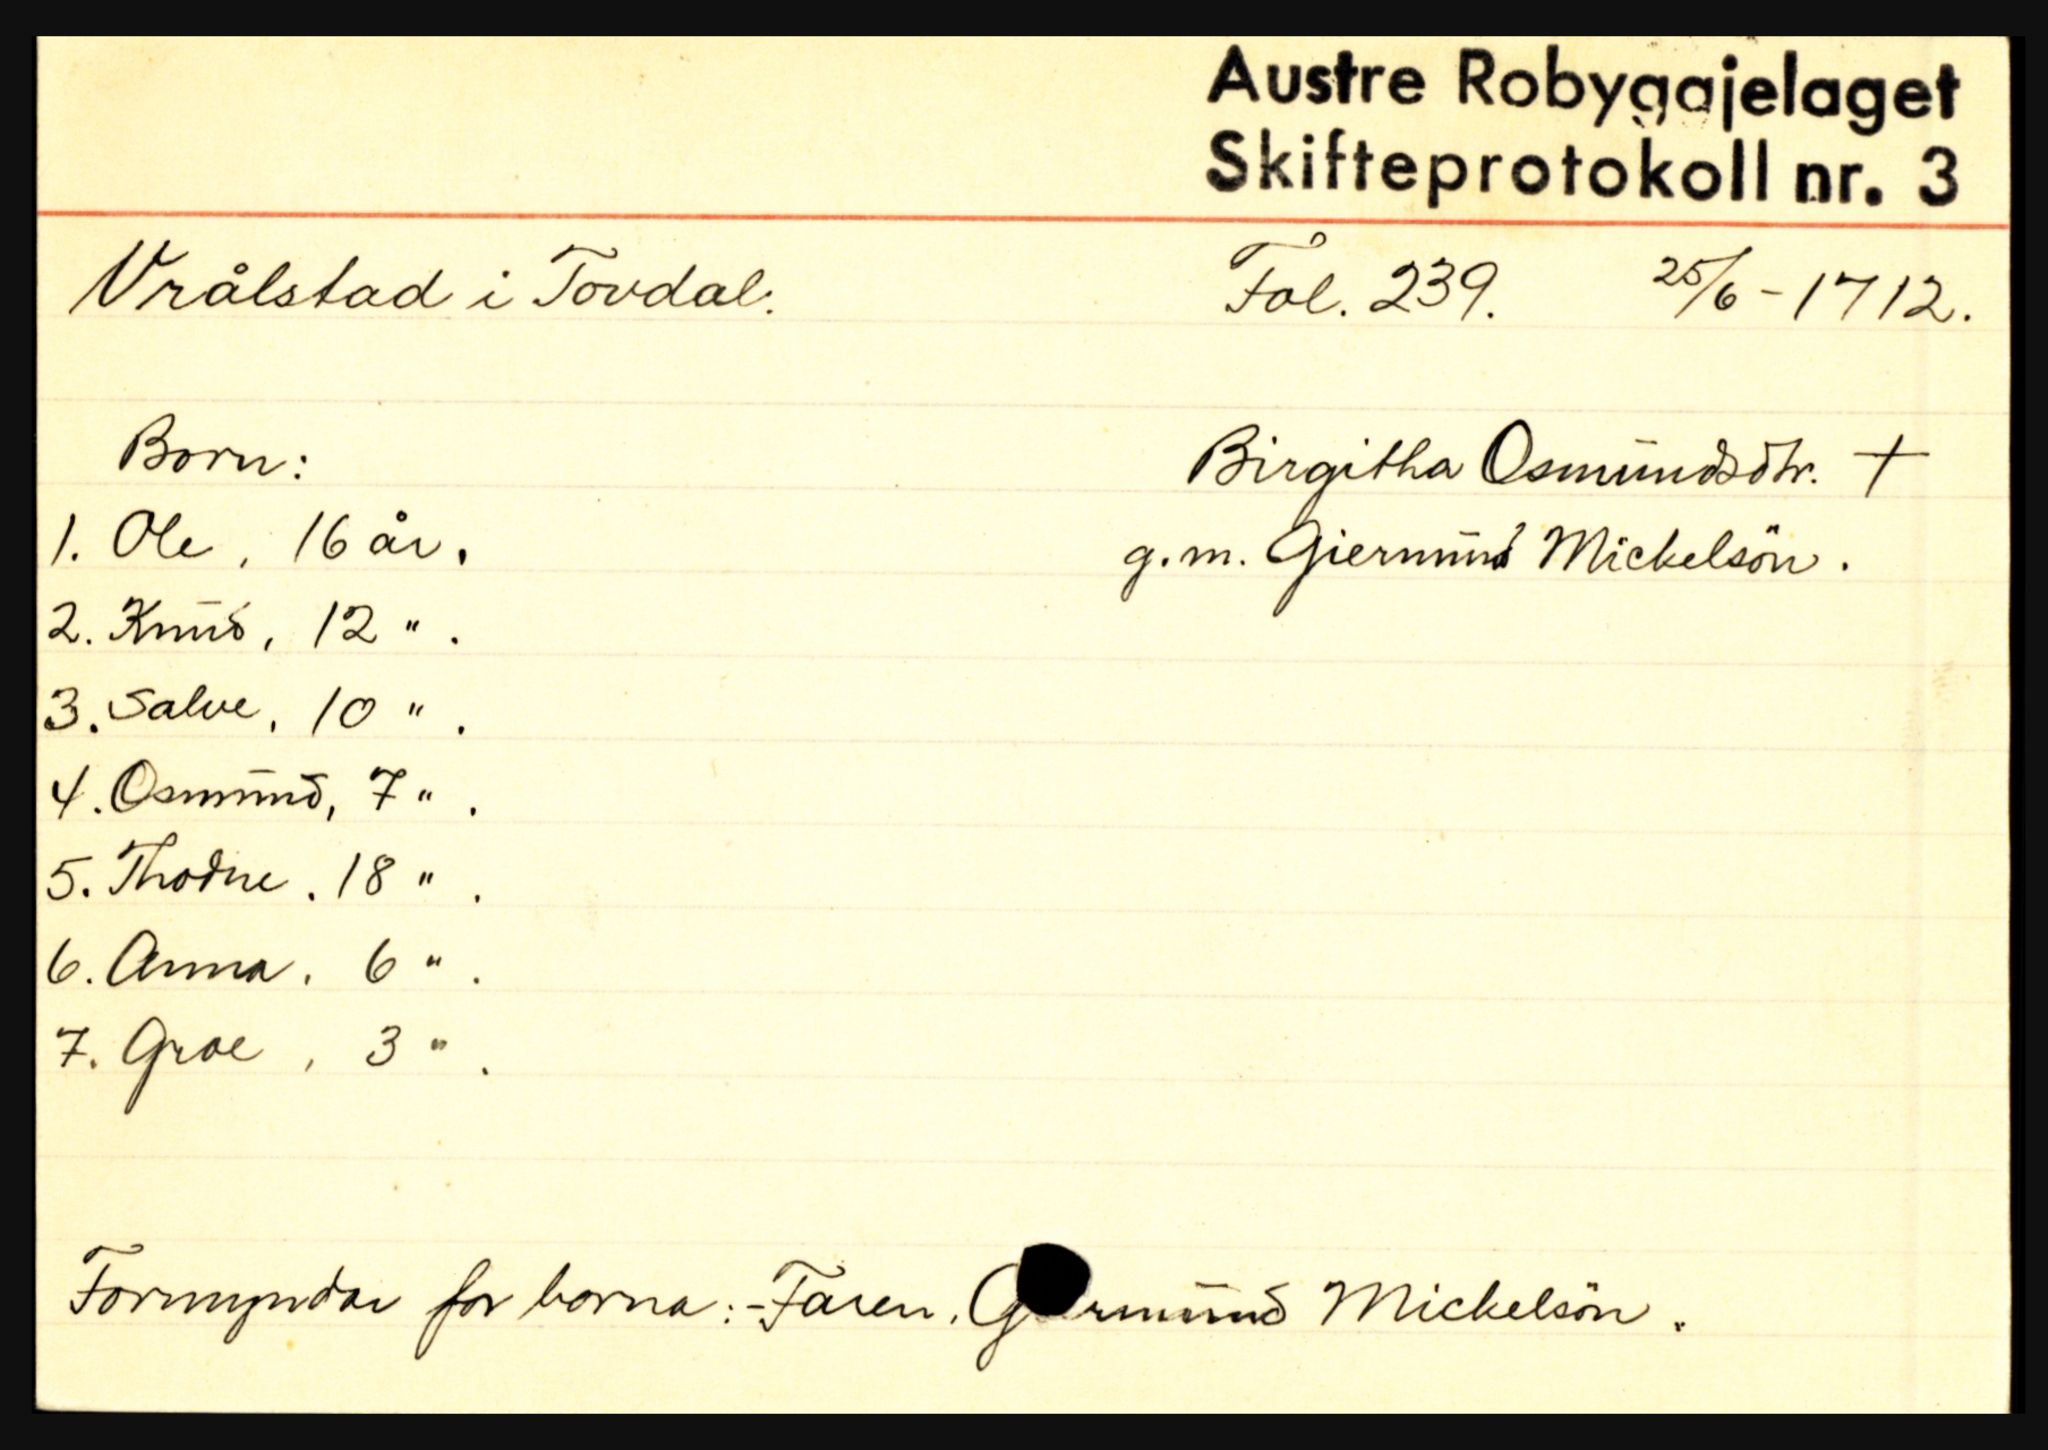 Austre Robyggjelaget
Skifteprotokoll nr. 3
Vrålstad i Tovdal: Fol. 239. 25/6 - 1712.
Born: Birgitha Osmundsdtr. +
1. Ole, 16 år. g.m. Giermund Mickelsön.
2. Knud, 12 " .
3. Salve, 10 " .
4. Osmund, 7 " .
5. Thodne. 18 " .
6. Anna, 6 " .
7. Groe, 3 " .
Formyndar for borna: - Faren, Mickelsön.